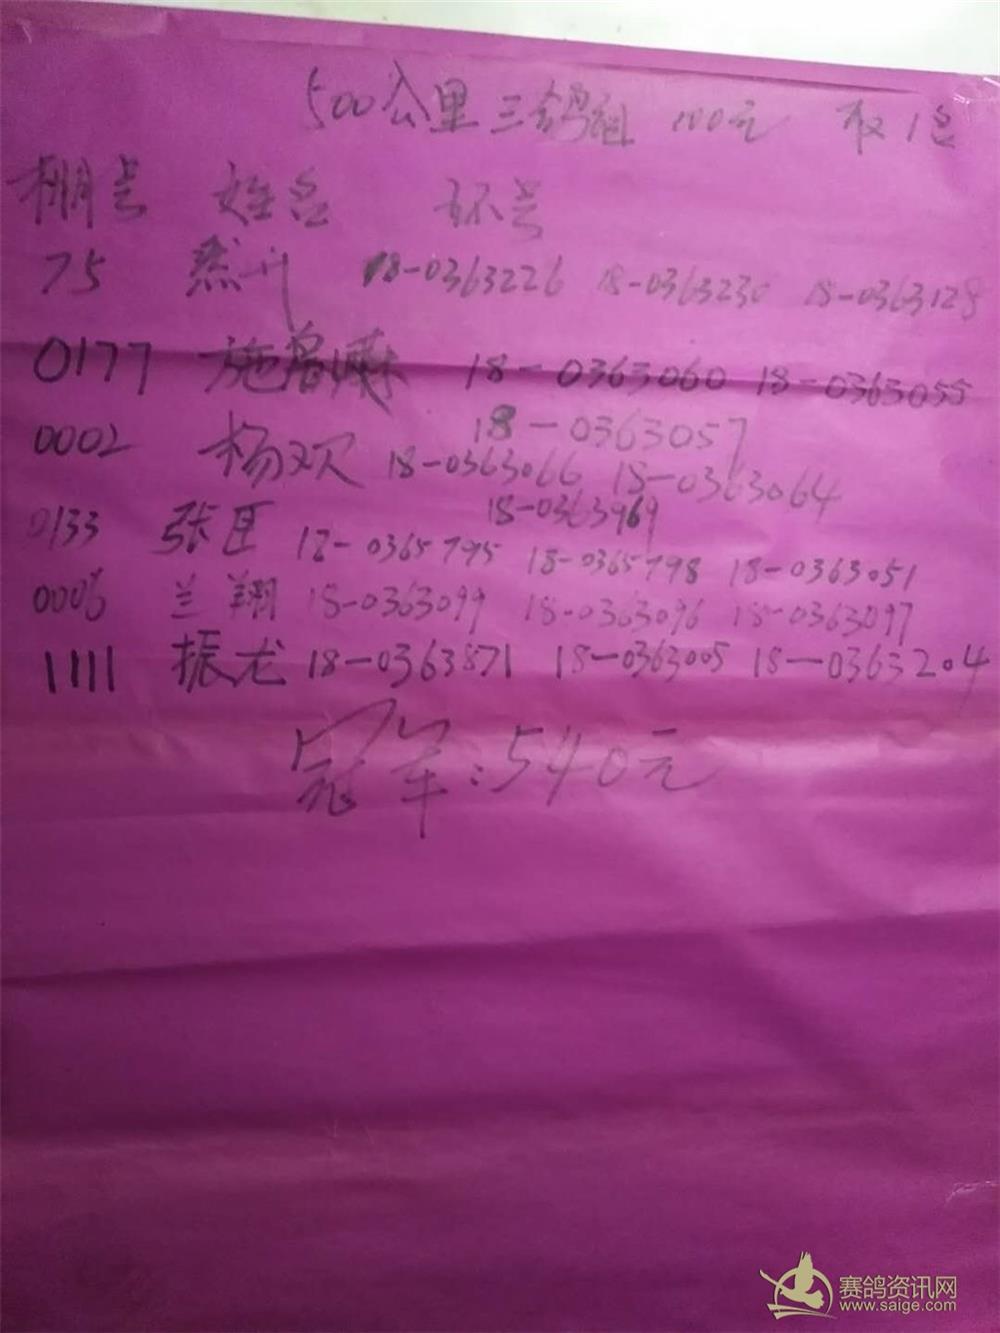 500公里三鸽组 100元 取1名
棚号 姓名 环号
75 18-0363226 18-0363230 18-0363128
0177 施 18-0363060 18-0363055
18-0363057
0002 杨欢 18-0363066 18-0363064
18-0363969
0133 张臣 18-0365795 18-0365798 18-0363051
0006 兰翔 18-0363099 18-0363096 18-0363097
1111 振龙 18-0363871 18-0363005 18-0363204
冠军:540元
赛鸽资讯网
www.saige.com